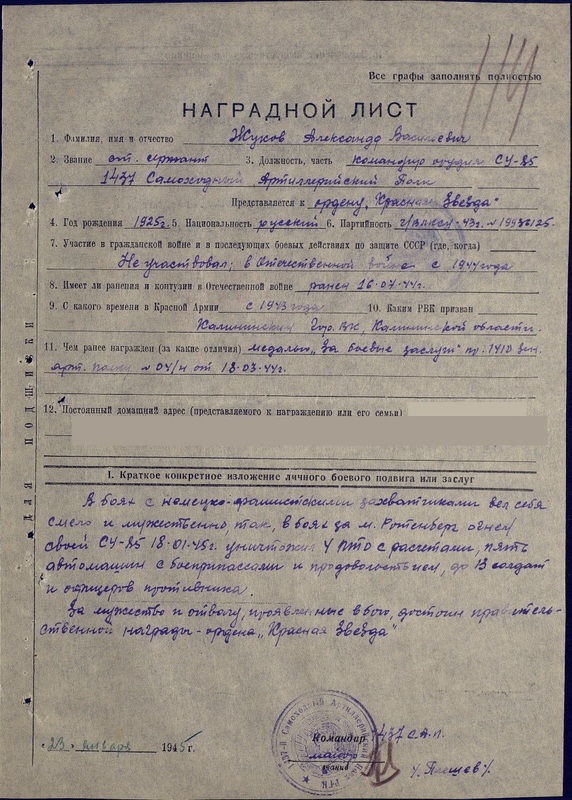 Все графы заполнять полностью
НАГРАДНОЙ ЛИСТ
1. Фамилия, имя и отчество Жуков Александр Васильевич
2. Звание ст. сержант 3. Должность, часть командир орудия СУ-85
1437 Самоходный Артиллерийский Полк
Представляется к ордену „Красная Звезда"
4. Год рождения 1925г. 5. Национальность русский 6. Партийность
7. Участие в гражданской войне и в последующих боевых действиях по защите СССР (где, когда)
Не участвовал; в Отечественной войне с 1944 года
8. Имеет ли ранения и контузии в Отечественной войне ранен 16-07-44г.
9. С какого времени в Красной Армии с 1943 года 10. Каким РВК призван
Калининский Гор. ВК, Калининской области.
11. Чем ранее награжден (за какие отличия) медалью „За боевые заслуги" пр. 1410
арт. полку № 04/н от 18-03-44г.
12. Постоянный домашний адрес (представляемого к награждению или его семьи)
I. Краткое конкретное изложение личного боевого подвига или заслуг
В боях с немецко-фашистскими захватчиками вел себя
смело и мужественно так, в боях за м. Ротенберг огнем
своей СУ-85 18-01-45г. уничтожил 4 ПТО с расчетами, пять
автомашин с боеприпасами и продовольствием, до 13 солдат
и офицеров противника.
За мужество и отвагу, проявленные в бою, достоин правитель-
ственной награды - ордена „Красная Звезда"
ДЛЯ ПОДШИВКИ
Командир 1437 С.А.П.
майор
звание
„23" января 1945г.